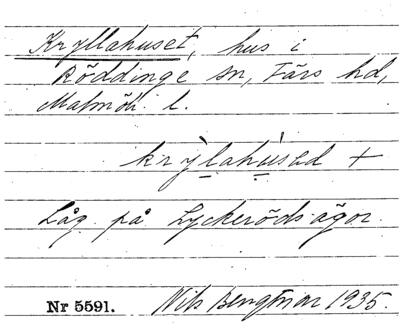 Kryllahuset, hus i
Röddinge sn, Färs hd,
Malmöh. l.
krỳlahúsəd +
Låg på Lyckeröds ägor.
Nr 5591. Nils Bengtmar 1935.